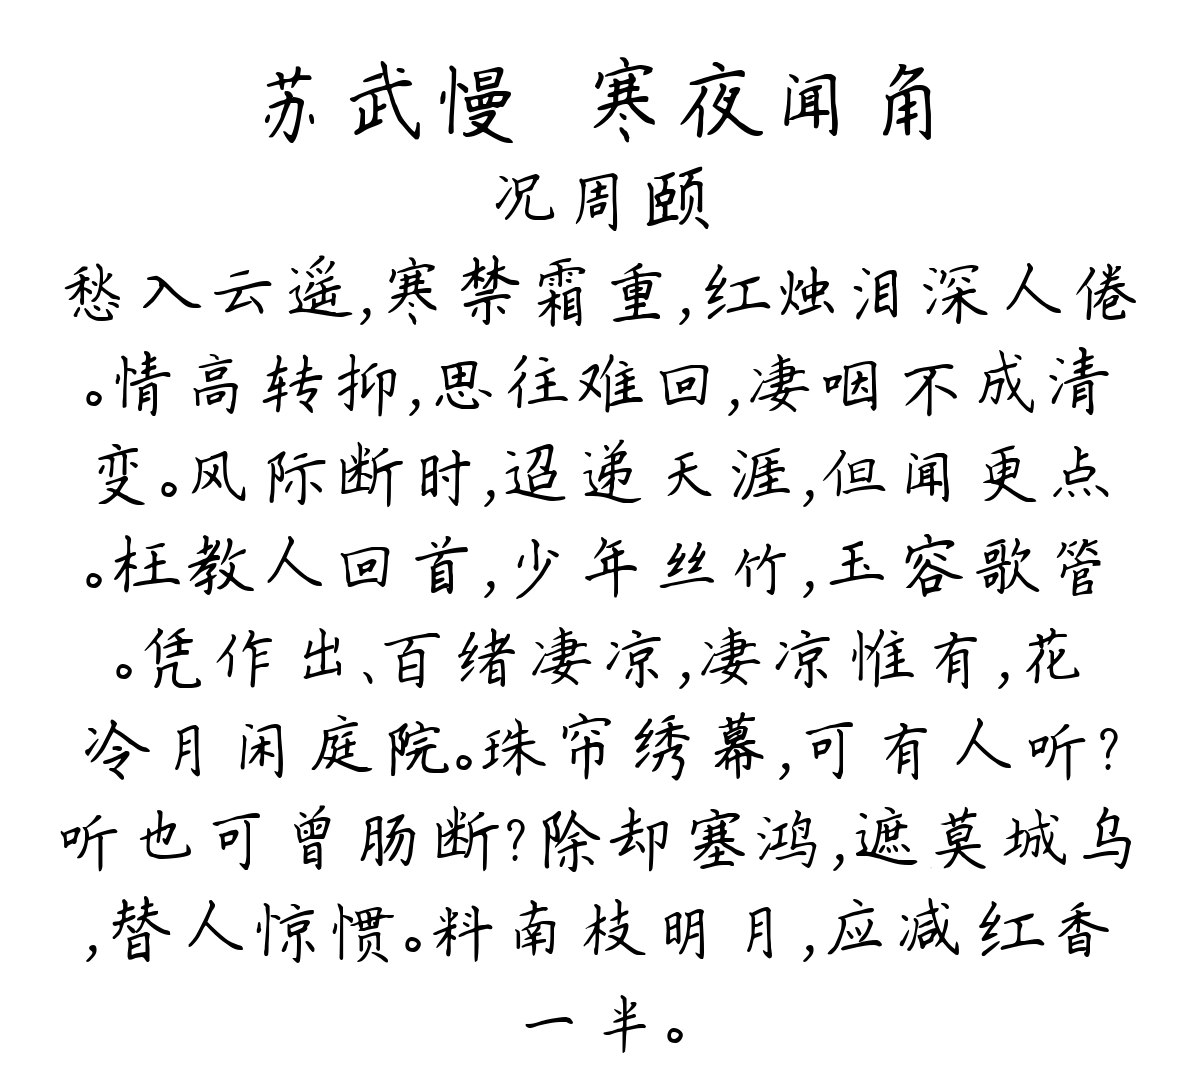 苏武慢 寒夜闻角
况周颐
愁入云遥,寒禁霜重,红烛泪深人倦
。情高转抑,思往难回,凄咽不成清
变。风际断时,迢递天涯,但闻更点
。枉教人回首,少年丝竹,玉容歌管
。凭作出、百绪凄凉,凄凉惟有,花
冷月闲庭院。珠帘绣幕,可有人听?
听也可曾肠断?除却塞鸿,遮莫城乌
,替人惊惯。料南枝明月,应减红香
一半。